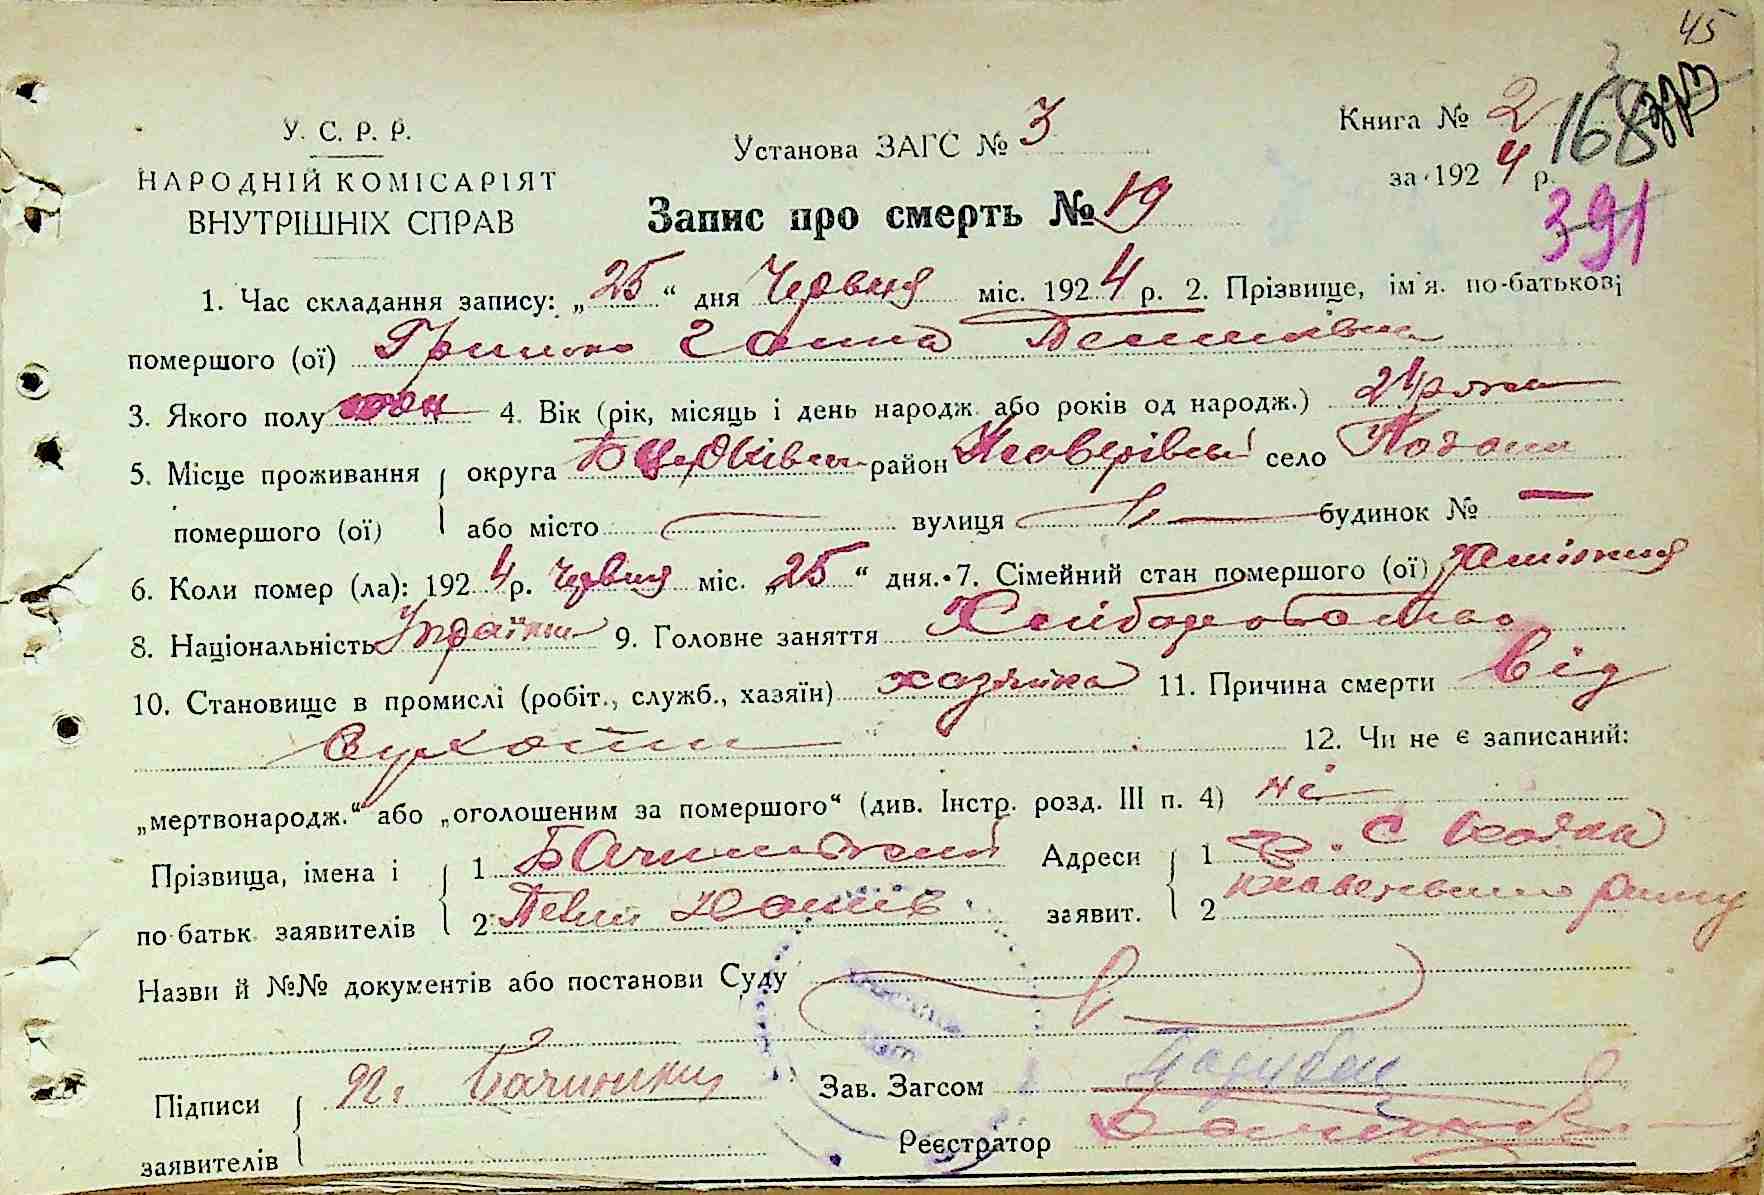 45
У. С. Р. Р.
НАРОДНІЙ КОМІСАРІЯТ
ВНУТРІШНІХ СПРАВ
Установа ЗАГС № 3
Книга № 2
168
за 1924 р.
391
Запис про смерть № 19
1. Час складання запису: „25“ дня Червня міс. 1924 р. 2. Прізвище, ім'я. по-батькові
помершого (ої) Ганна
3. Якого полу жон 4. Вік (рік, місяць і день народж. або років од народж.) 24 роки
5. Місце проживання округа Б Церківська район село
помершого (ої) або місто — вулиця — будинок № —
6. Коли помер (ла): 1924 р. Червня міс. „25“ дня. 7. Сімейний стан помершого (ої)
8. Національність 9. Головне заняття Хліборобство
10. Становище в промислі (робіт., служб., хазяїн) хазяйка 11. Причина смерти від
сухоти 12. Чи не є записаний:
„мертвонародж.“ або „оголошеним за помершого“ (див. Інстр. розд. III п. 4) ні
Прізвища, імена і 1 Адреси 1 с
по-батьк. заявителів 2 заявит. 2
Назви й №№ документів або постанови Суду
Підписи
Зав. Загсом
Реєстратор
заявителів